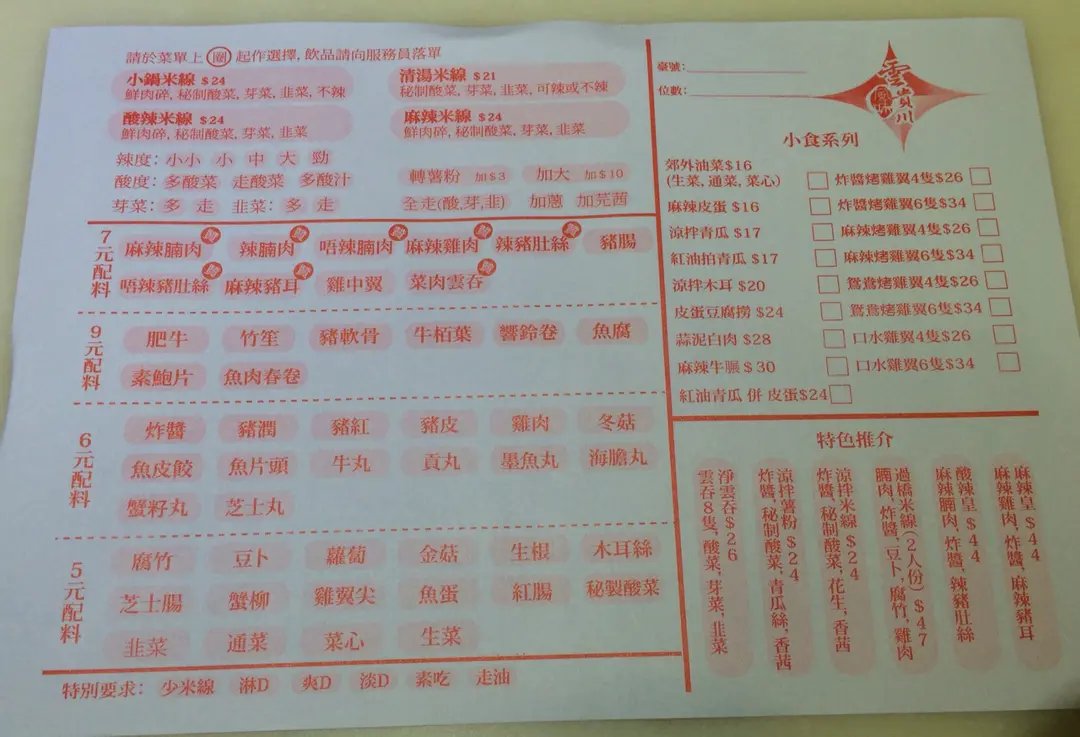 請於菜單上 圈 起作選擇, 飲品請向服務員落單
小鍋米線 $24
鮮肉碎, 秘制酸菜, 芽菜, 韭菜, 不辣
清湯米線 $21
秘制酸菜, 芽菜, 韭菜, 可辣或不辣
酸辣米線 $24
鮮肉碎, 秘制酸菜, 芽菜, 韭菜
麻辣米線 $24
鮮肉碎, 秘制酸菜, 芽菜, 韭菜
辣度: 小小 小 中 大 勁
酸度: 多酸菜 走酸菜 多酸汁
芽菜: 多 走 韭菜: 多 走
轉薯粉 加$3 加大 加$10
全走(酸,芽,韭) 加蔥 加芫茜
7元配料
麻辣腩肉 辣腩肉 唔辣腩肉 麻辣雞肉 辣豬肚絲 豬腸
唔辣豬肚絲 麻辣豬耳 雞中翼 菜肉雲吞
9元配料
肥牛 竹笙 豬軟骨 牛栢葉 響鈴卷 魚腐
素鮑片 魚肉春卷
6元配料
炸醬 豬潤 豬紅 豬皮 雞肉 冬菇
魚皮餃 魚片頭 牛丸 貢丸 墨魚丸 海膽丸
蟹籽丸 芝士丸
5元配料
腐竹 豆卜 蘿蔔 金菇 生根 木耳絲
芝士腸 蟹柳 雞翼尖 魚蛋 紅腸 秘製酸菜
韭菜 通菜 菜心 生菜
特別要求: 少米線 淋D 爽D 淡D 素吃 走油
臺號:
位數:
雲貴川
小食系列
郊外油菜$16
(生菜, 通菜, 菜心)
麻辣皮蛋 $16
涼拌青瓜 $17
紅油拍青瓜 $17
涼拌木耳 $20
皮蛋豆腐撈 $24
蒜泥白肉 $28
麻辣牛𦟌 $30
紅油青瓜 併 皮蛋$24
炸醬烤雞翼4隻$26
炸醬烤雞翼6隻$34
麻辣烤雞翼4隻$26
麻辣烤雞翼6隻$34
鴛鴦烤雞翼4隻$26
鴛鴦烤雞翼6隻$34
口水雞翼4隻$26
口水雞翼6隻$34
特色推介
麻辣皇 $44
麻辣雞肉, 炸醬, 麻辣豬耳
酸辣皇 $44
麻辣腩肉, 炸醬, 辣豬肚絲
過橋米線(2人份) $47
腩肉, 炸醬, 豆卜, 腐竹, 雞肉
涼拌米線 $24
炸醬, 秘制酸菜, 花生, 香茜
涼拌薯粉 $24
炸醬, 秘制酸菜, 青瓜絲, 香茜
淨雲吞 $26
雲吞8隻, 酸菜, 芽菜, 韭菜